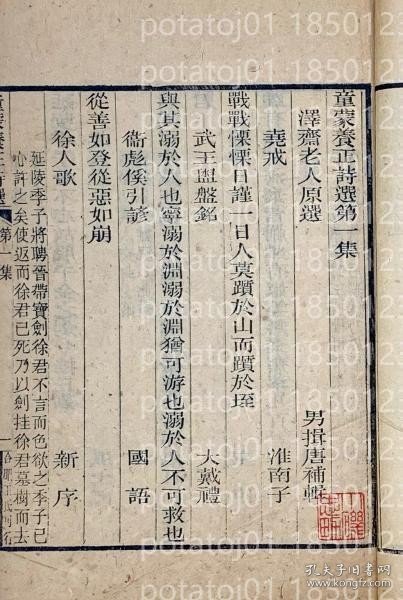 童蒙養正詩選第一集
澤齋老人原選　男揖唐補輯
堯戒　淮南子
戰戰慄慄日謹一日人莫躓於山而躓於垤
武王盥盤銘　大戴禮
與其溺於人也寧溺於淵溺於淵猶可游也溺於人不可救也
衞彪傒引諺　國語
從善如登從惡如崩
徐人歌　新序
延陵季子將聘晉帶寶劍徐君不言而色欲之季子已
心許之矣使返而徐君已死乃以劍挂徐君墓樹而去
童蒙養正詩選　第一集　一
potatoj01 1850123
孔夫子旧书网
www.kongfz.com